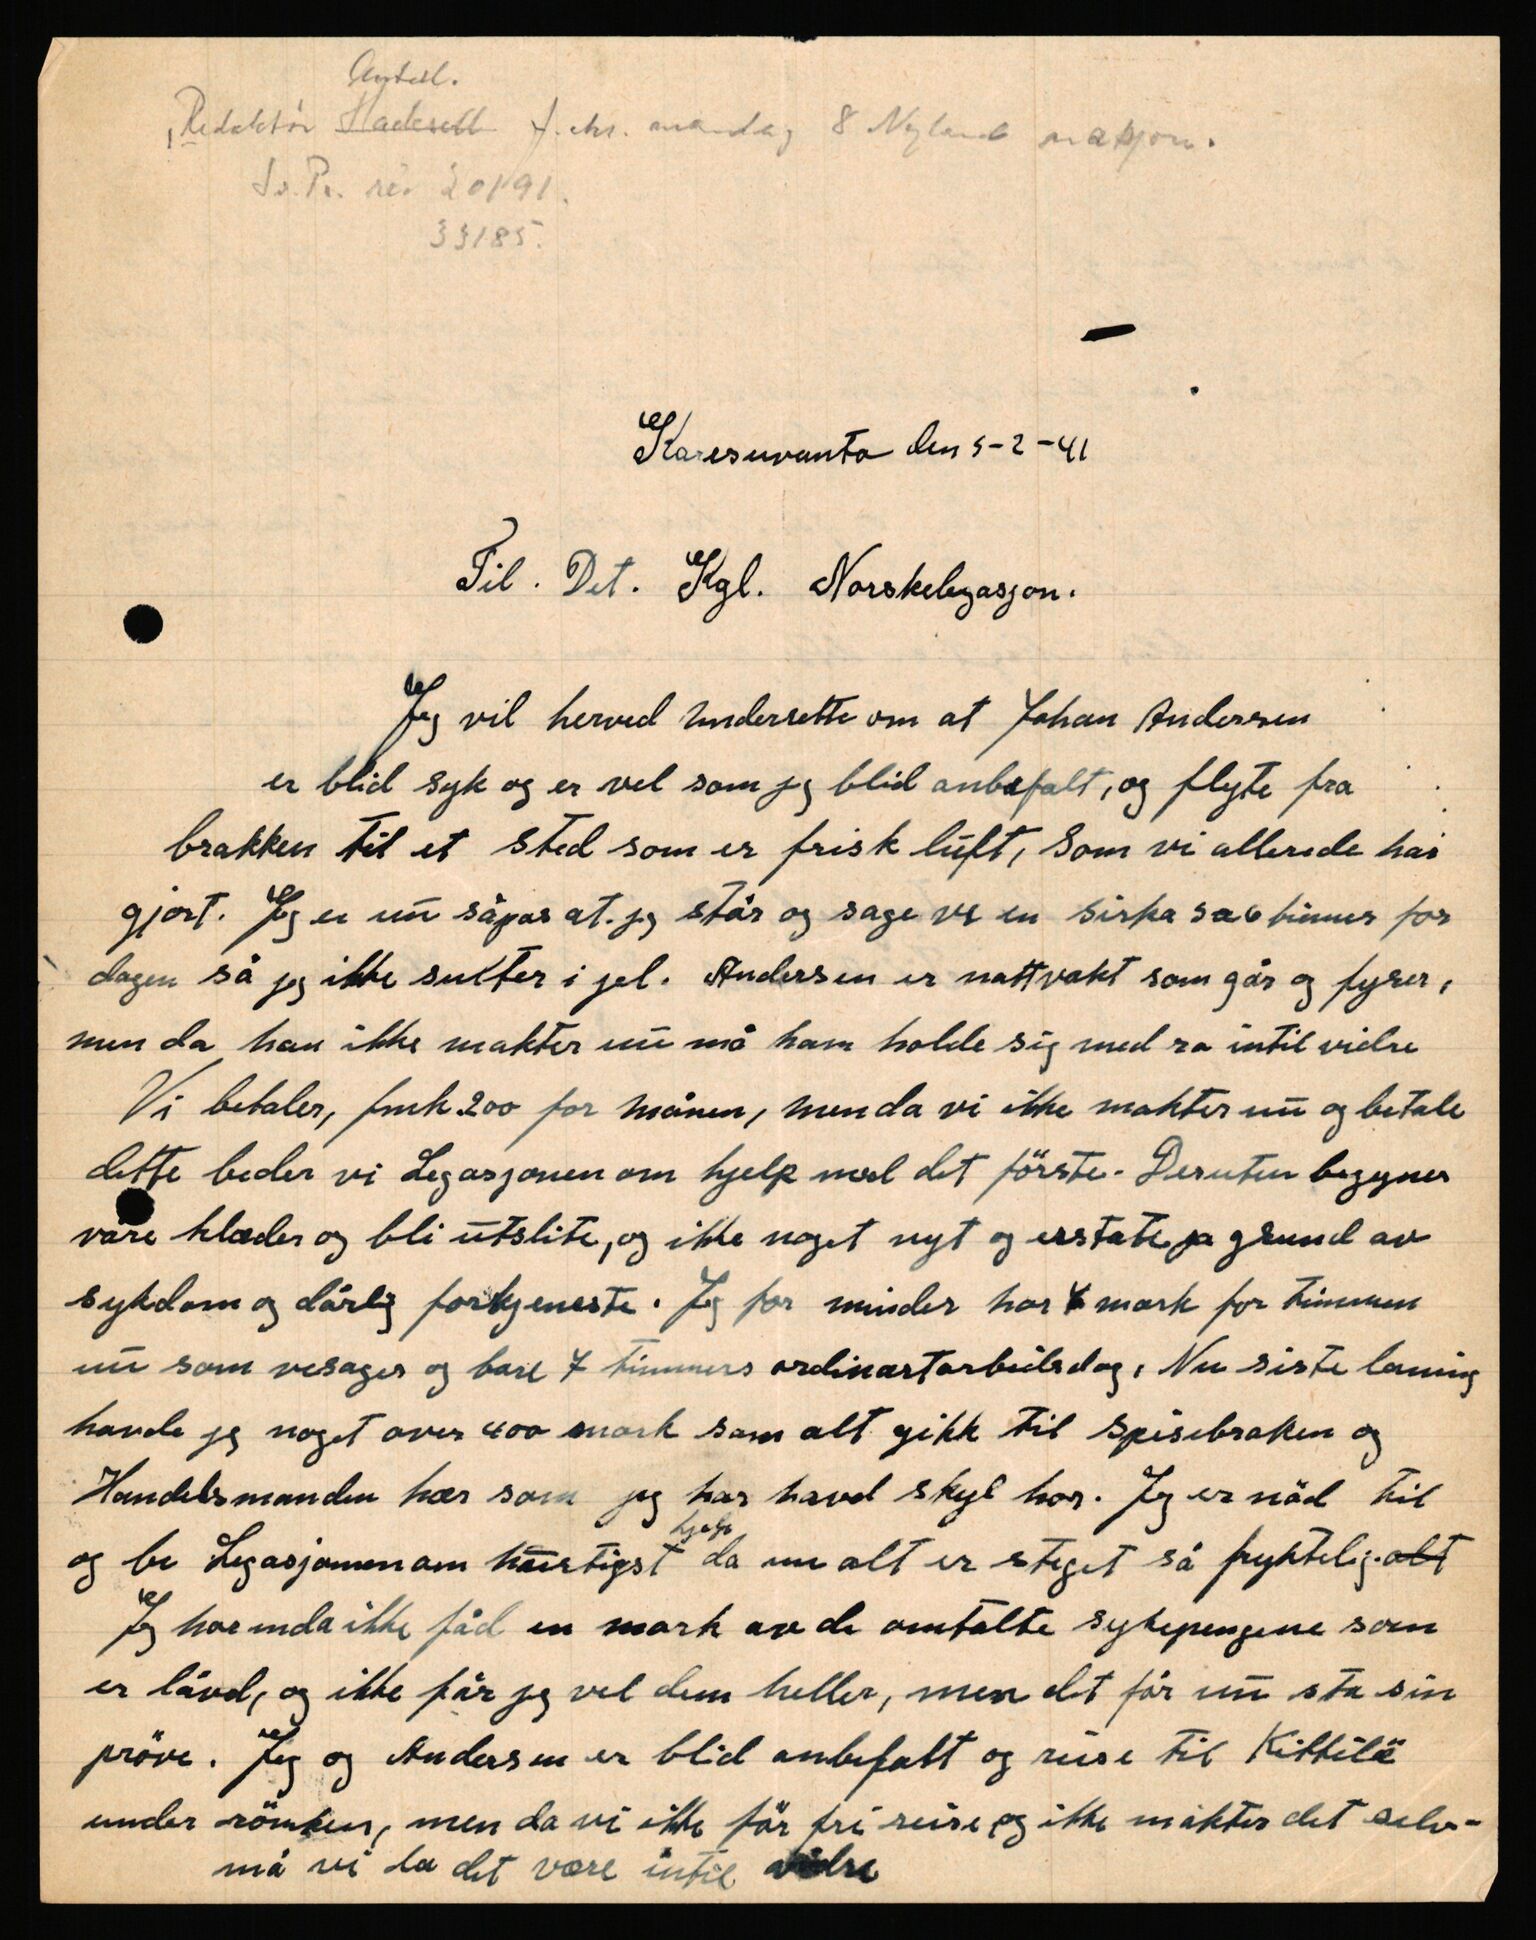 Redaktör f. mandag 8 Nylands nasjon.
20191.
33185.
Karesuvanto den 5-2-41
Til. Det. Kgl. Norskelegasjon.
Jeg vil herved undersette om at Johan Andersen
er blid syk og er vel som jeg blid anbefalt, og flyte fra
brakken til et sted som er frisk luft, som vi allerede har
gjort. Jeg er nu såpas at jeg står og sage ve en sirka 5 a 6 timer for
dagen så jeg ikke sulter i jel. Andersen er nattvakt som går og fyrer,
men da han ikke makter nu må ham holde sig med ro intil vidre
Vi betaler, fmk 200 for månen, men da vi ikke makter nu og betale
dette beder vi Legasjonen om hjelp med det förste. Desuten begyner
våre klæder og bli utslite, og ikke noget nyt og erstate pa grund av
sykdom og dårlig forkjeneste. Jeg for minder har 4 mark for timmen
nu som vesager og bare 7 timmers ordinært arbeidsdag, Nu siste lønning
havde jeg noget over 400 mark som alt gikk til spisebraken og
Handelsmanden hær som jeg har havd skyl hos. Jeg er nöd til
og be Legasjonen om hurtigst hjelp da nu alt er steget så fryktelig. alt
Jeg har enda ikke fåd en mark av de omtalte sykepengene som
er låvd, og ikke får jeg vel dem heller, men det får nu sta sin
pröve. Jeg og Andersen er blid anbefalt og reise til Kittilä
under römken, men da vi ikke får fri reise, og ikke makter det selv-
må vi la det være intil vidre